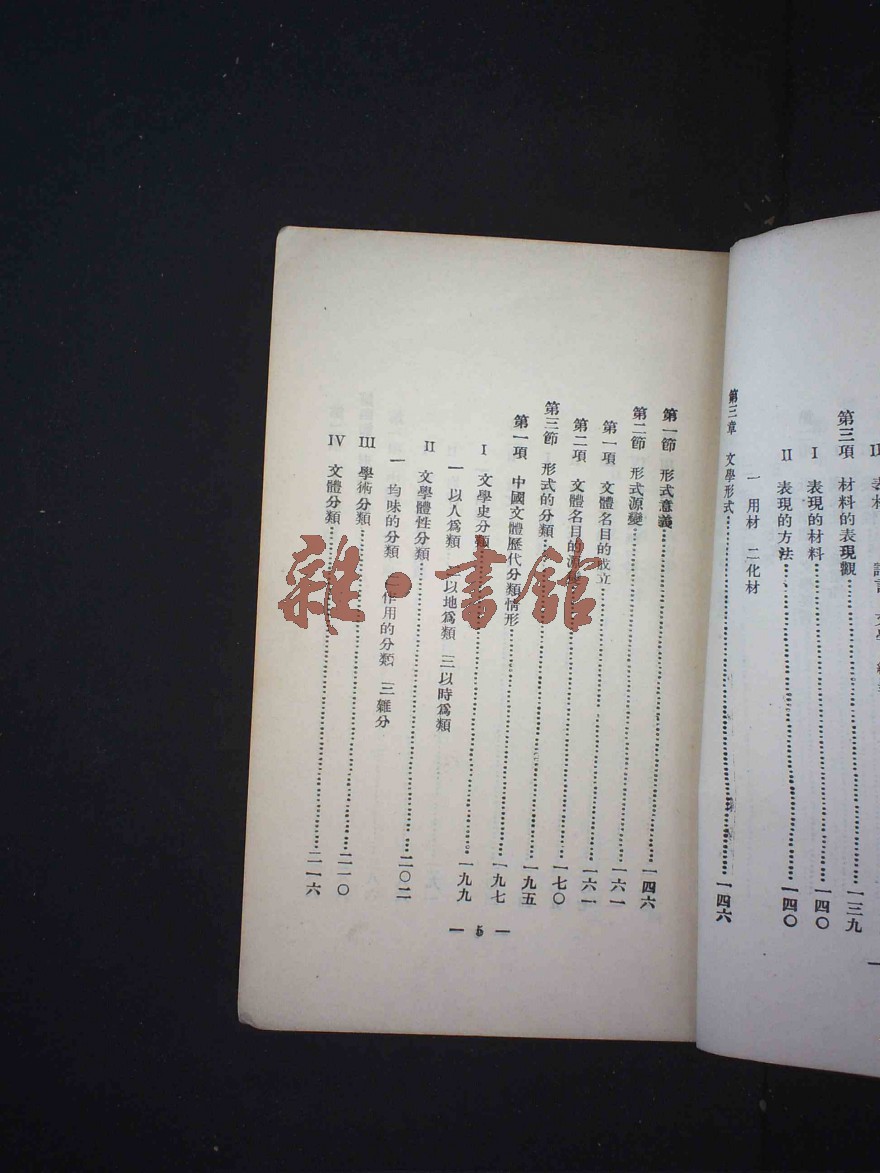 第三項 材料的表現觀……一三九
I 表現的材料……一四〇
II 表現的方法……一四〇
一 用材 二化材
第三章 文學形式……一四六
第一節 形式意義……一四六
第二節 形式源變……一六一
第一項 文體名目的成立……一六一
第二項 文體名目的源變……一七〇
第三節 形式的分類……一九五
第一項 中國文體歷代分類情形……一九七
I 文學史分類……一九九
一 以人爲類 二以地爲類 三以時爲類
II 文學體性分類……二〇二
一 均味的分類 二作用的分類 三雜分
III 學術分類……二一〇
IV 文體分類……二一六
— 5 —
雜·書館